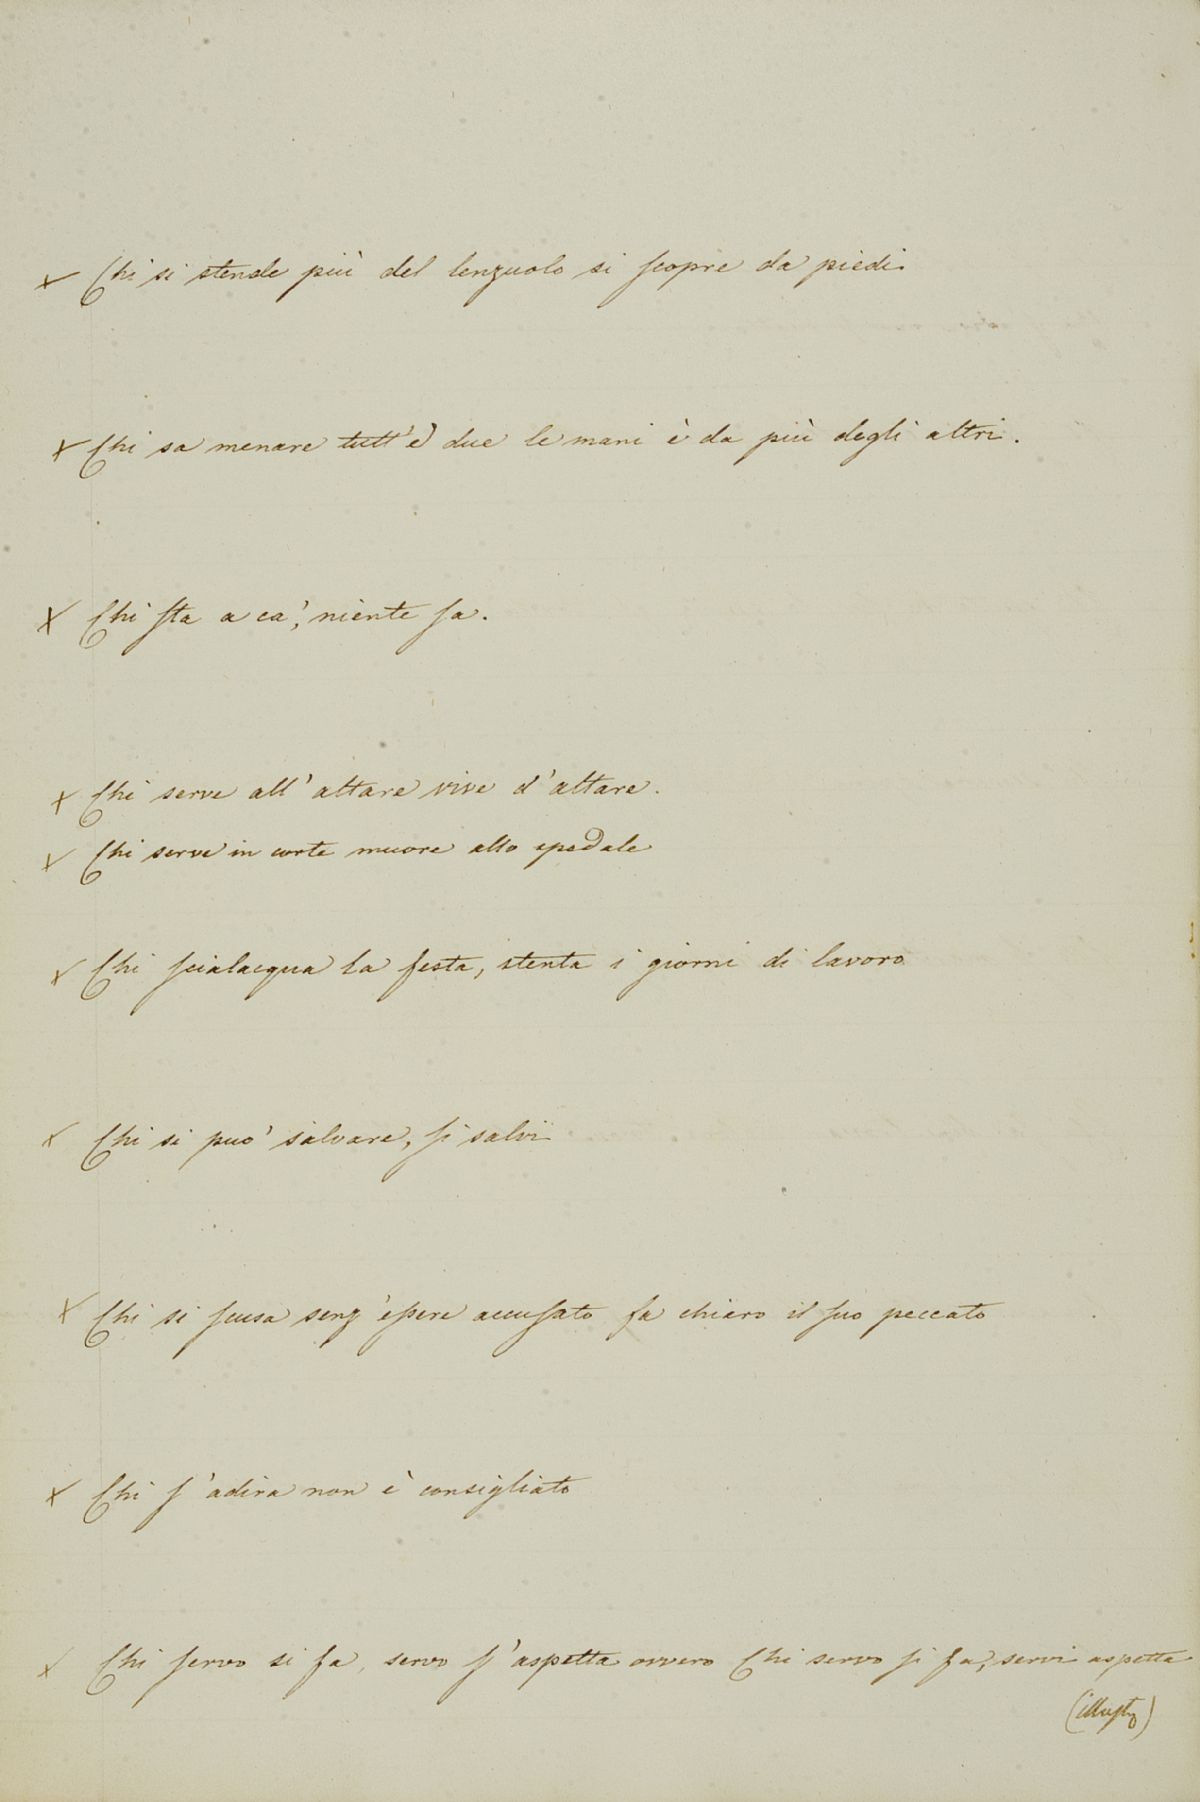 x Chi si stende più del lenzuolo si scopre da piedi.
x Chi sa menare tutt'è due le mani è da più degli altri.
x Chi sta a ca', niente sa.
x Chi serve all'altare vive d'altare.
x Chi serve in corte muore allo spedale
x Chi scialacqua la festa, stenta i giorni di lavoro
x Chi si può salvare, si salvi
x Chi si scusa senz'essere accusato fa chiaro il suo peccato
x Chi s'adira non è consigliato
x Chi servo si fa, servo s'aspetta ovvero Chi servo si fa, servi aspetta